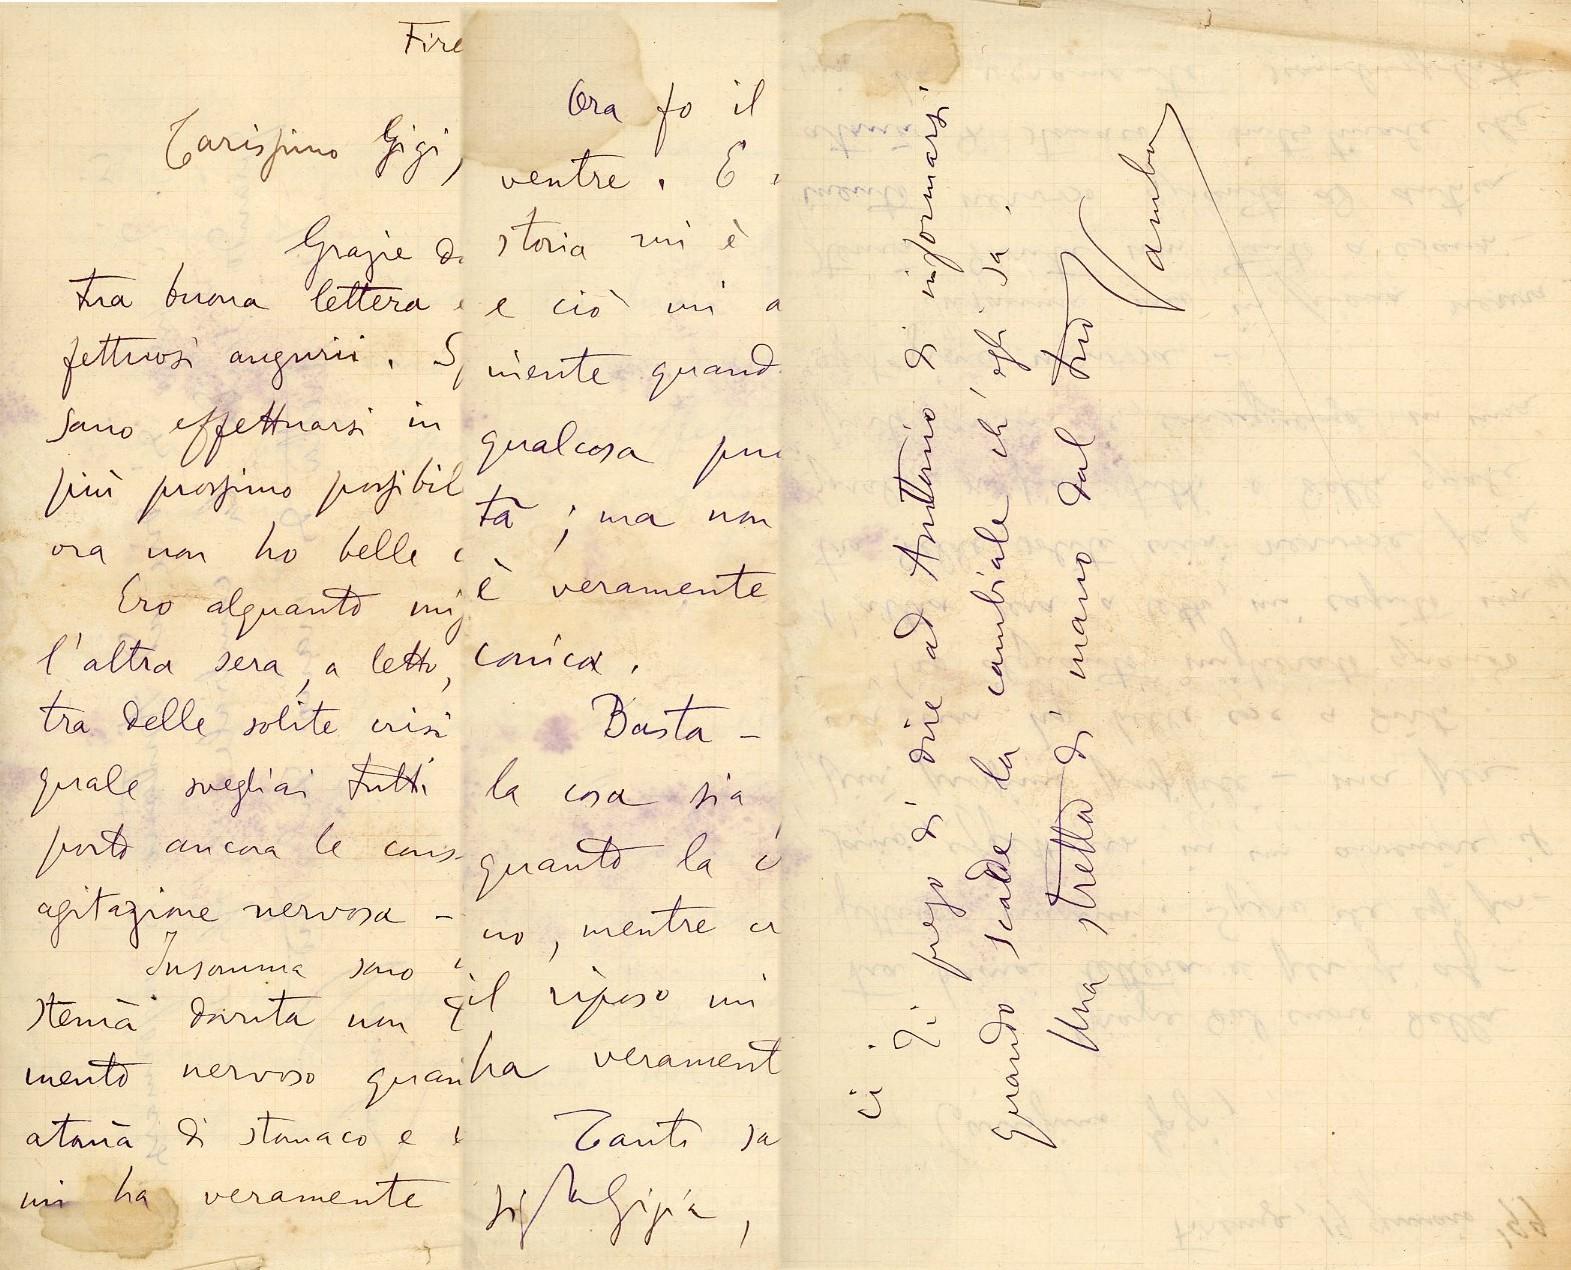 Fire
Carissimo Gigi,
Grazie da
tua buona lettera e
fettuosi augurii. Sp
sano effettuarsi in
più prossimo possibil
ora non ho belle c
Ero alquanto mig
l'altra sera, a letto,
tra delle solite crisi
quale svegliai tutti
porto ancora le cons
agitazione nervosa -
Insomma sono
stenia dovuta non
mento nervoso quan
atonia di stomaco e
mi ha veramente
Ora fo il
ventre. E
storia mi è
e ciò mi a
niente quand
qualcosa può
tà; ma non
è veramente
conica.
Basta -
la cosa sia
quanto la
no, mentre cr
il riposo mi
ha verament
Tanti sa
Gigia,
ci.
Ti prego di dire ad Antonio di informarsi
quando scade la cambiale ch'egli sa.
Una stretta di mano dal tuo
Vamba